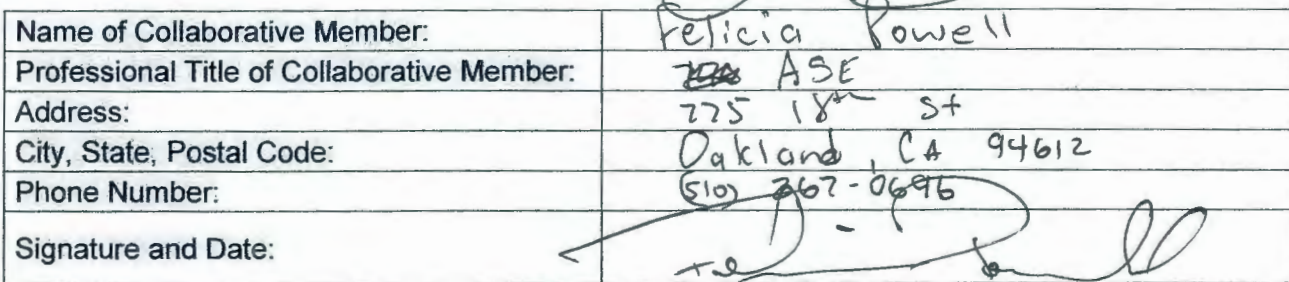 Name of Collaborative Member: Felicia Powell
Professional Title of Collaborative Member: ASE
Address: 775 18th St
City, State, Postal Code: Oakland, CA 94612
Phone Number: (510) 367-0696
Signature and Date: